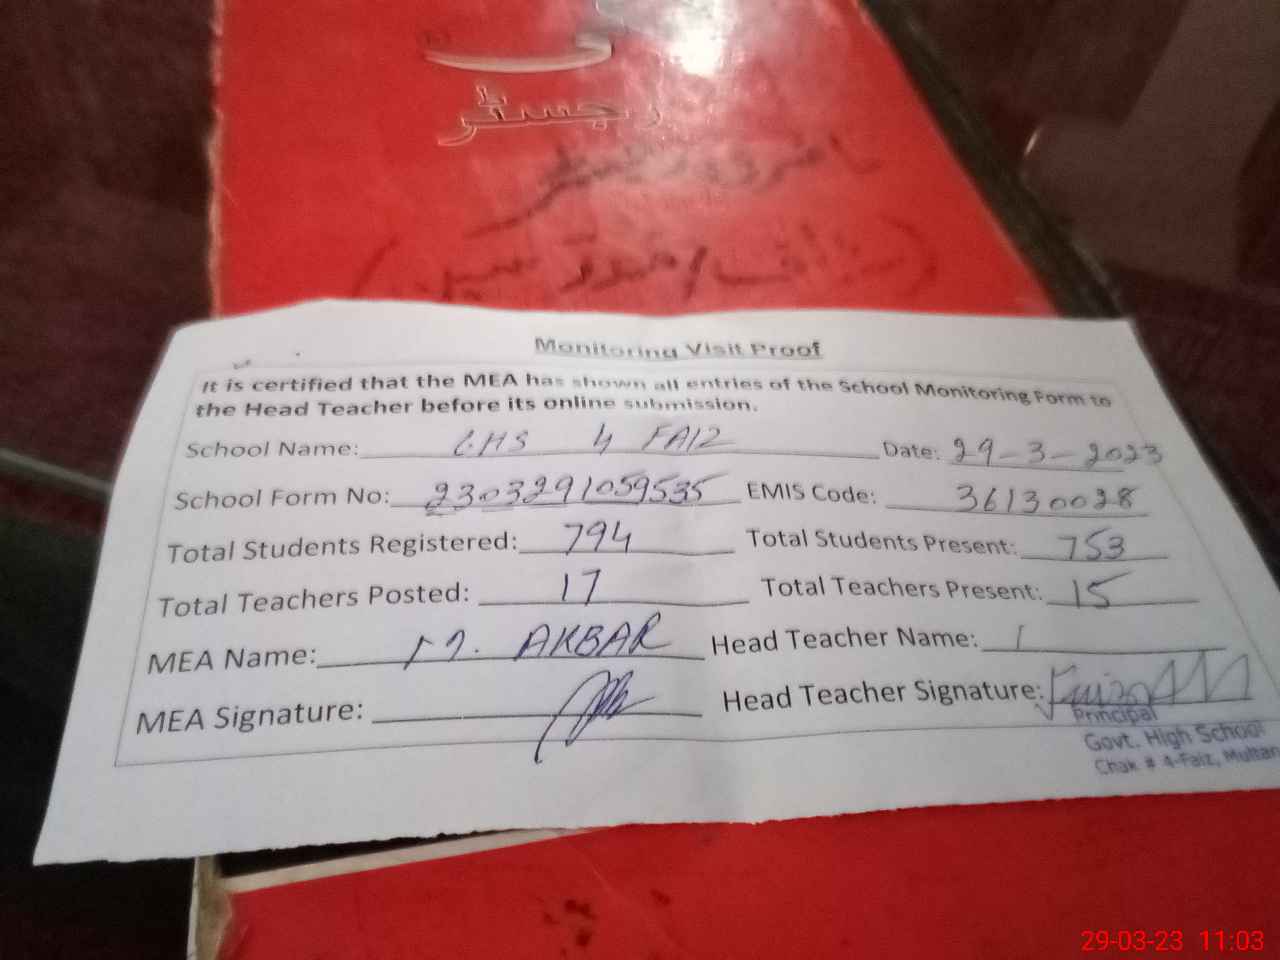 رجسٹر
Monitoring Visit Proof
It is certified that the MEA has shown all entries of the School Monitoring Form to
the Head Teacher before its online submission.
School Name: GHS 4 FAIZ Date: 29-3-2023
School Form No: 2303291059535 EMIS Code: 36130028
Total Students Registered: 794 Total Students Present: 753
Total Teachers Posted: 17 Total Teachers Present: 15
MEA Name: M. AKBAR Head Teacher Name:
MEA Signature: Head Teacher Signature:
Principal
Govt. High School
Chak # 4-Faiz, Multan
29-03-23 11:03